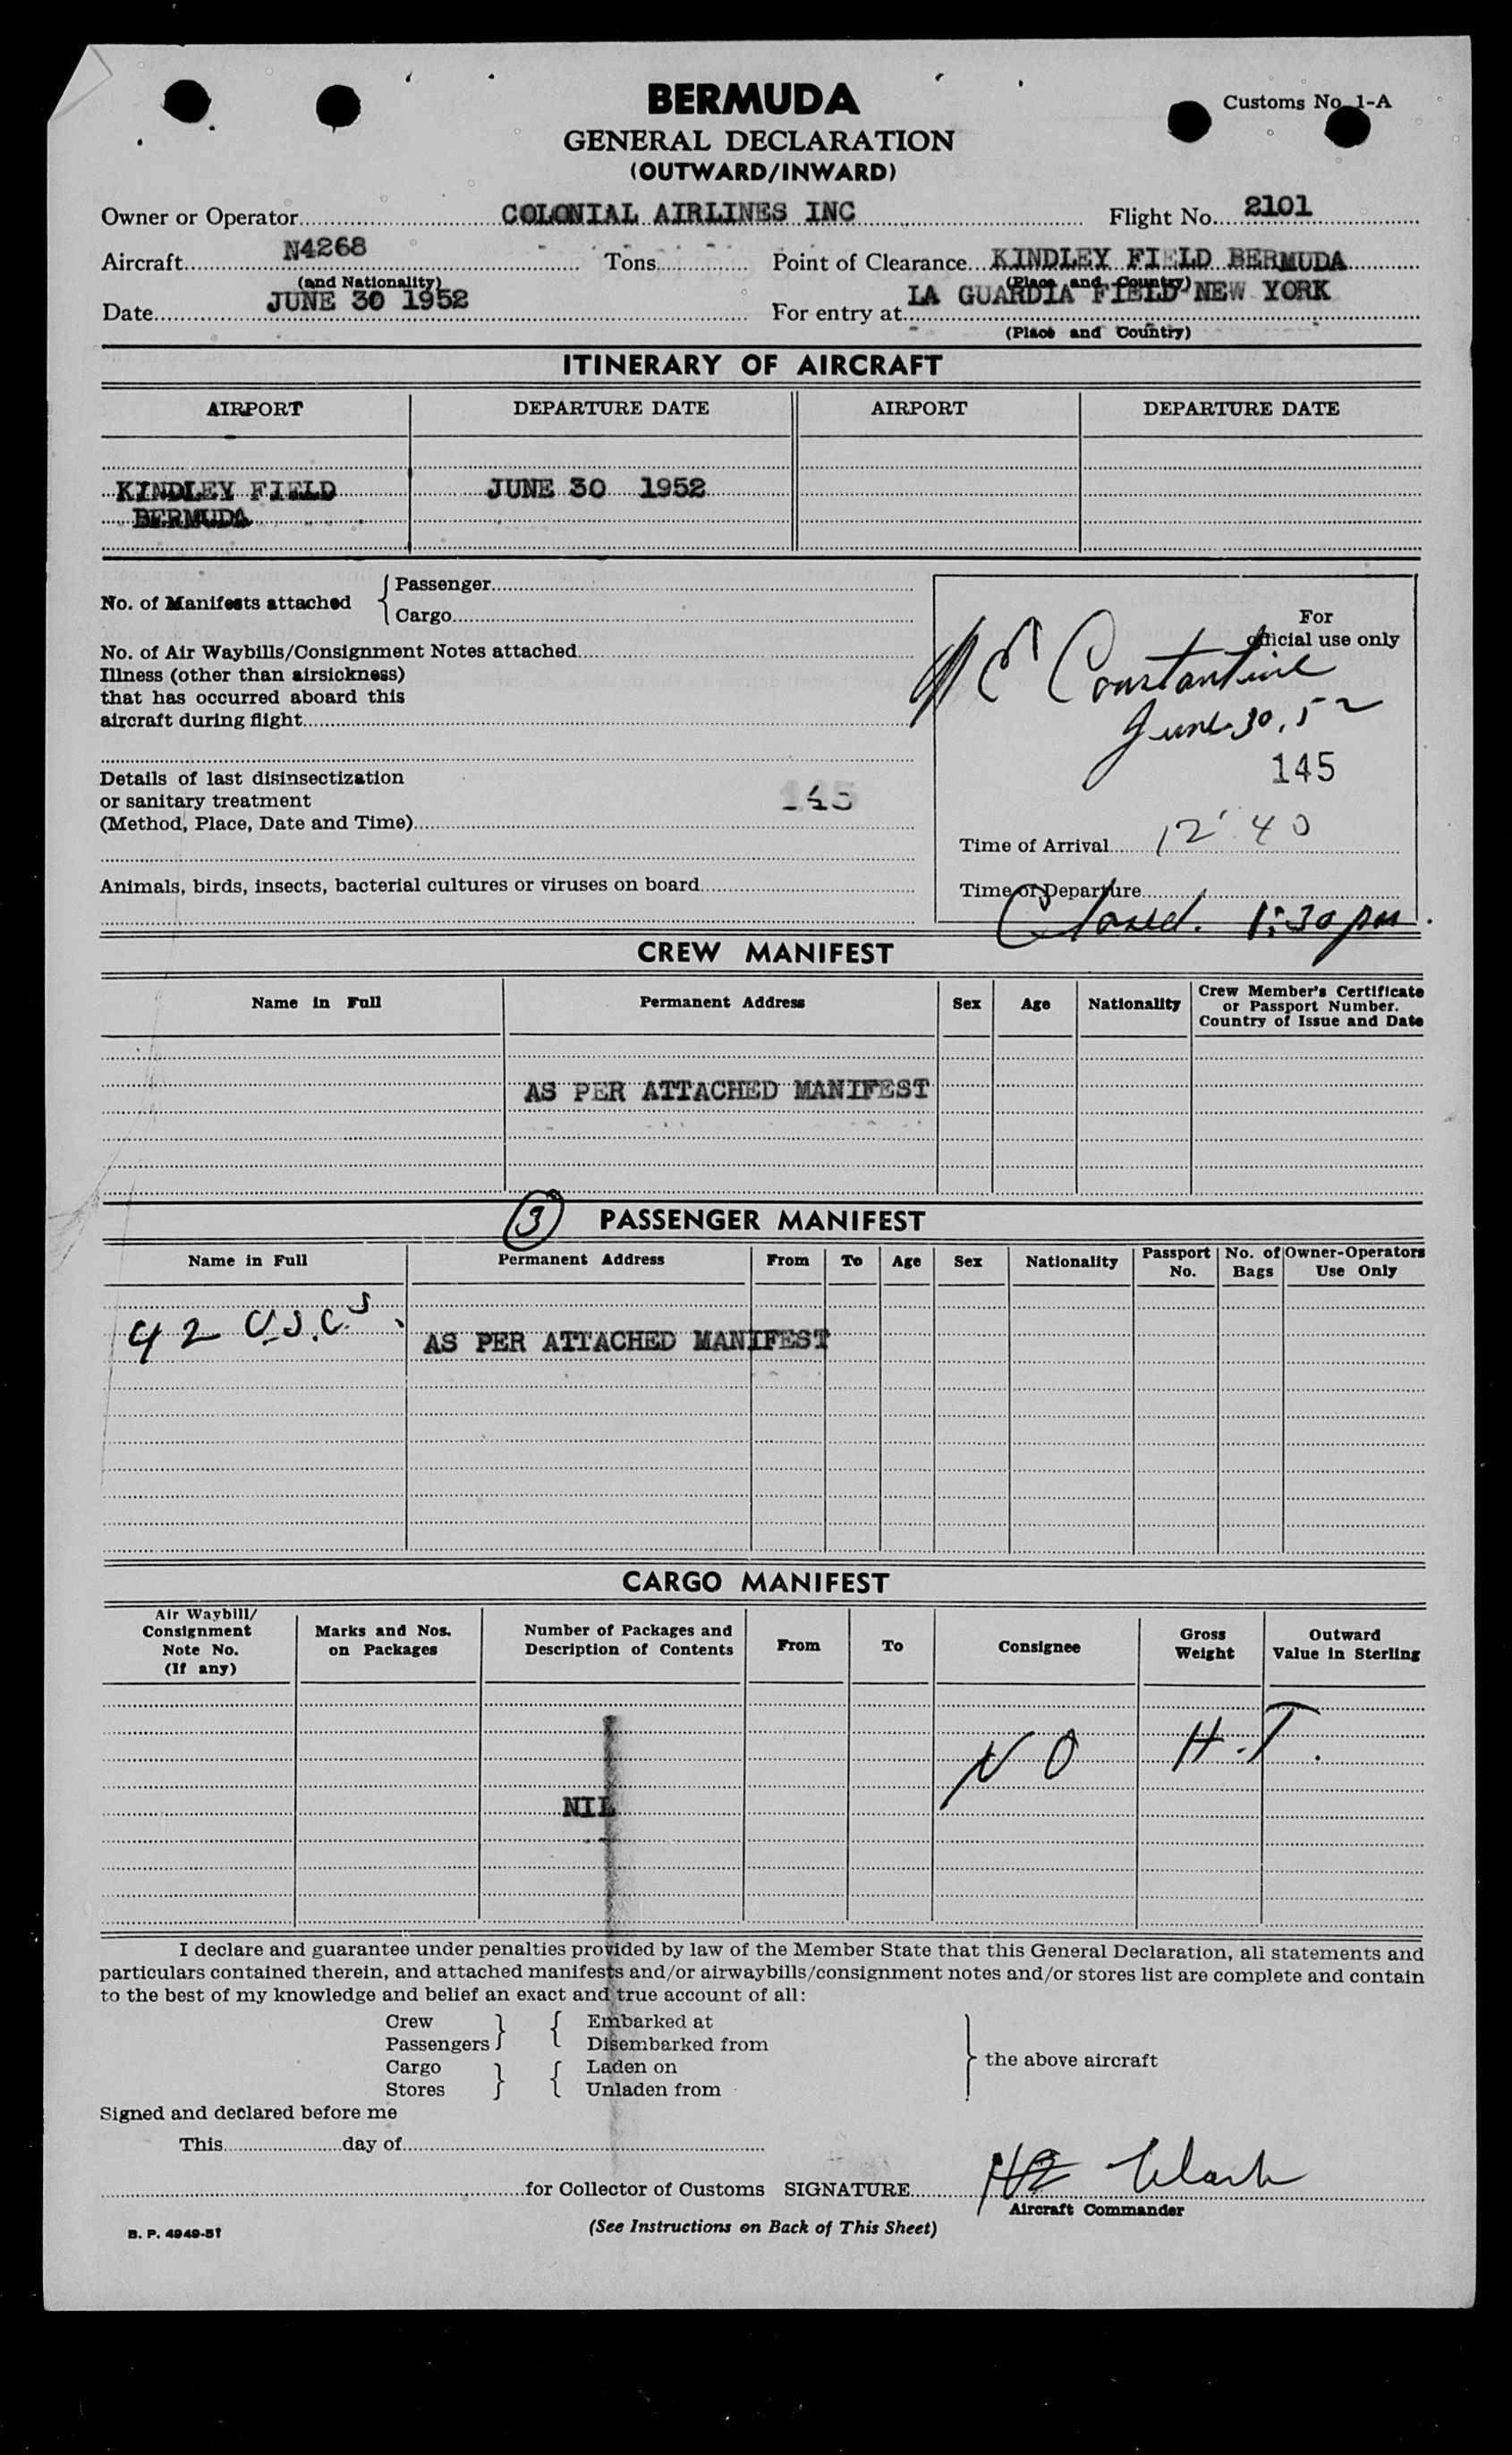 BERMUDA
Customs No. 1-A
GENERAL DECLARATION
(OUTWARD/INWARD)
Owner or Operator COLONIAL AIRLINES INC Flight No. 2101
Aircraft N4268 Tons Point of Clearance KINDLEY FIELD BERMUDA
(and Nationality) (Place and Country)
Date JUNE 30 1952 For entry at LA GUARDIA FIELD NEW YORK
(Place and Country)
ITINERARY OF AIRCRAFT
AIRPORT DEPARTURE DATE AIRPORT DEPARTURE DATE
KINDLEY FIELD JUNE 30 1952
BERMUDA
No. of Manifests attached Passenger
Cargo
No. of Air Waybills/Consignment Notes attached
Illness (other than airsickness)
that has occurred aboard this
aircraft during flight
Details of last disinsectization
or sanitary treatment
(Method, Place, Date and Time)
Animals, birds, insects, bacterial cultures or viruses on board
For
official use only
Constantine
June 30, 52
145
Time of Arrival 12 40
Time of Departure
Closed. 1:30 pm.
CREW MANIFEST
Name in Full Permanent Address Sex Age Nationality Crew Member's Certificate or Passport Number. Country of Issue and Date
AS PER ATTACHED MANIFEST
3 PASSENGER MANIFEST
Name in Full Permanent Address From To Age Sex Nationality Passport No. No. of Bags Owner-Operators Use Only
42 U.S.C.s.
AS PER ATTACHED MANIFEST
CARGO MANIFEST
Air Waybill/ Consignment Note No. (If any) Marks and Nos. on Packages Number of Packages and Description of Contents From To Consignee Gross Weight Outward Value in Sterling
NO H.T.
NIL
I declare and guarantee under penalties provided by law of the Member State that this General Declaration, all statements and
particulars contained therein, and attached manifests and/or airwaybills/consignment notes and/or stores list are complete and contain
to the best of my knowledge and belief an exact and true account of all:
Crew Embarked at
Passengers Disembarked from
the above aircraft
Cargo Laden on
Stores Unladen from
Signed and declared before me
This day of
for Collector of Customs SIGNATURE Clark
Aircraft Commander
B. P. 4949-51 (See Instructions on Back of This Sheet)